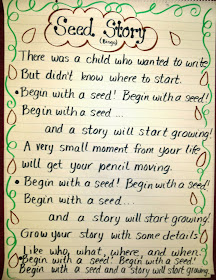 Seed Story
(Bingo)
There was a child who wanted to write
But didn't know where to start.
• Begin with a seed! Begin with a seed!
Begin with a seed ...
and a story will start growing!
A very small moment from your life
will get your pencil moving.
• Begin with a seed! Begin with a seed!
Begin with a seed...
and a story will start growing.
Grow your story with some details
Like who, what, where, and when?
Begin with a seed! Begin with a seed!
Begin with a seed and a story will start growing!